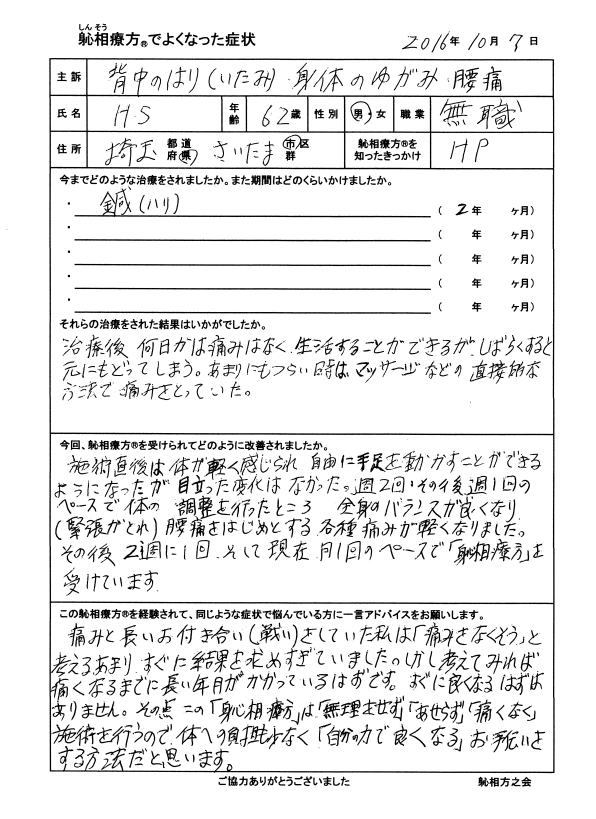 しん そう
躰相療方®でよくなった症状
2016年 10月 7日
主訴 背中のはり(いたみ)・身体のゆがみ・腰痛
氏名 H.S 年齢 62歳 性別 男・女 職業 無職
住所 埼玉 都道府県 さいたま 市区群 躰相療方®を知ったきっかけ HP
今までどのような治療をされましたか。また期間はどのくらいかけましたか。
・ 鍼(ハリ) ( 2年 ヶ月)
・ ( 年 ヶ月)
・ ( 年 ヶ月)
・ ( 年 ヶ月)
・ ( 年 ヶ月)
それらの治療をされた結果はいかがでしたか。
治療後 何日かは痛みはなく、生活することができるが、しばらくすると
元にもどってしまう。あまりにもつらい時は、マッサージなどの直接的な
方法で痛みをとっていた。
今回、躰相療方®を受けられてどのように改善されましたか。
施術直後は体が軽く感じられ 自由に手足を動かすことができる
ようになったが 目立った変化はなかった。週2回・その後週1回の
ペースで体の 調整を行ったところ 全身のバランスが良くなり
(緊張がとれ) 腰痛をはじめとする 各種痛みが軽くなりました。
その後 2週に1回、そして現在 月1回のペースで「躰相療方」を
受けています
この躰相療方®を経験されて、同じような症状で悩んでいる方に一言アドバイスをお願いします。
痛みと長いお付き合い(戦い)をしていた私は「痛みをなくそう」と
考えるあまり すぐに結果を求めすぎていました。しかし考えてみれば
痛くなるまでに長い年月がかかっているはずです。すぐに良くなるはずは
ありません。その点 この「躰相療方」は「無理をせず」「あせらず」「痛くなく」
施術を行うので、体への負担少なく「自分の力で良くなる」お手伝いを
する方法だと思います。
ご協力ありがとうございました 躰相方之会